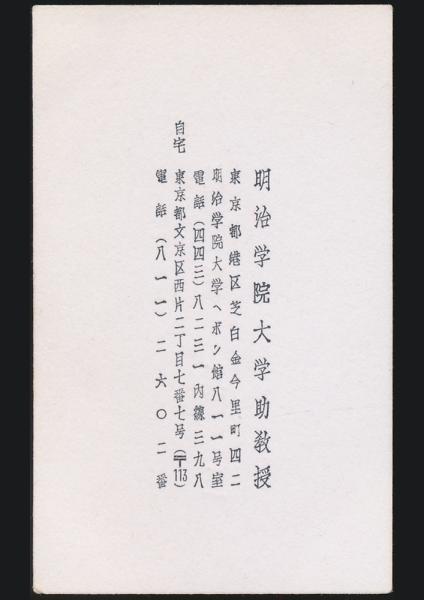 明治学院大学助教授
東京都港区芝白金今里町四二
明治学院大学ヘボン館八一一号室
電話(四四三)八二三一内線三九八
自宅 東京都文京区西片二丁目七番七号(〒113)
電話(八一一)二六〇二番